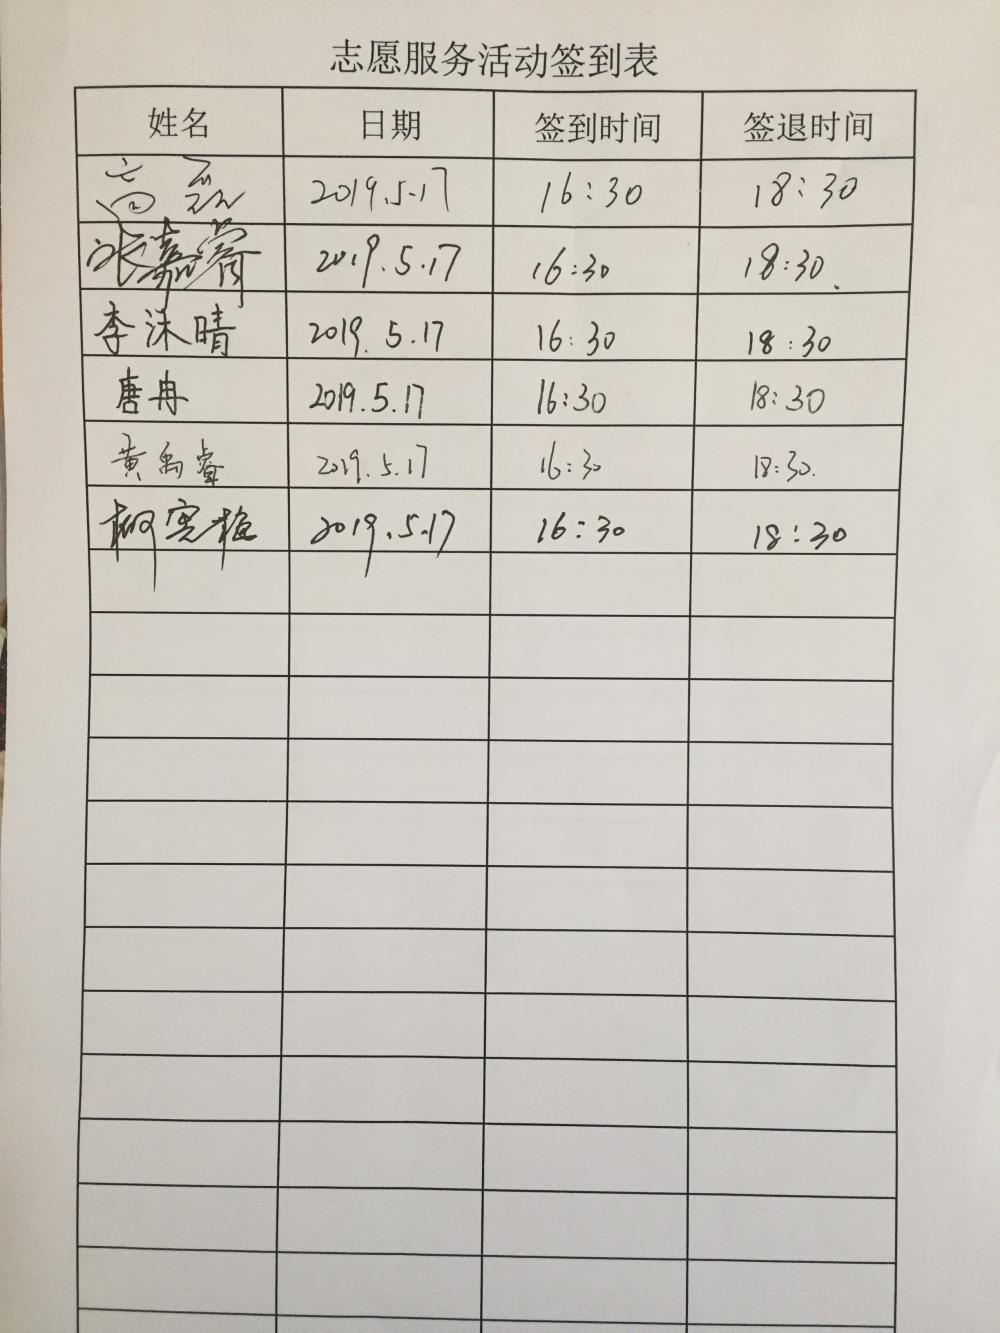 志愿服务活动签到表
姓名 日期 签到时间 签退时间
高磊 2019.5.17 16:30 18:30
张嘉睿 2019.5.17 16:30 18:30.
李沫晴 2019.5.17 16:30 18:30
唐冉 2019.5.17 16:30 18:30
黄禹睿 2019.5.17 16:30 18:30.
柳 2019.5.17 16:30 18:30